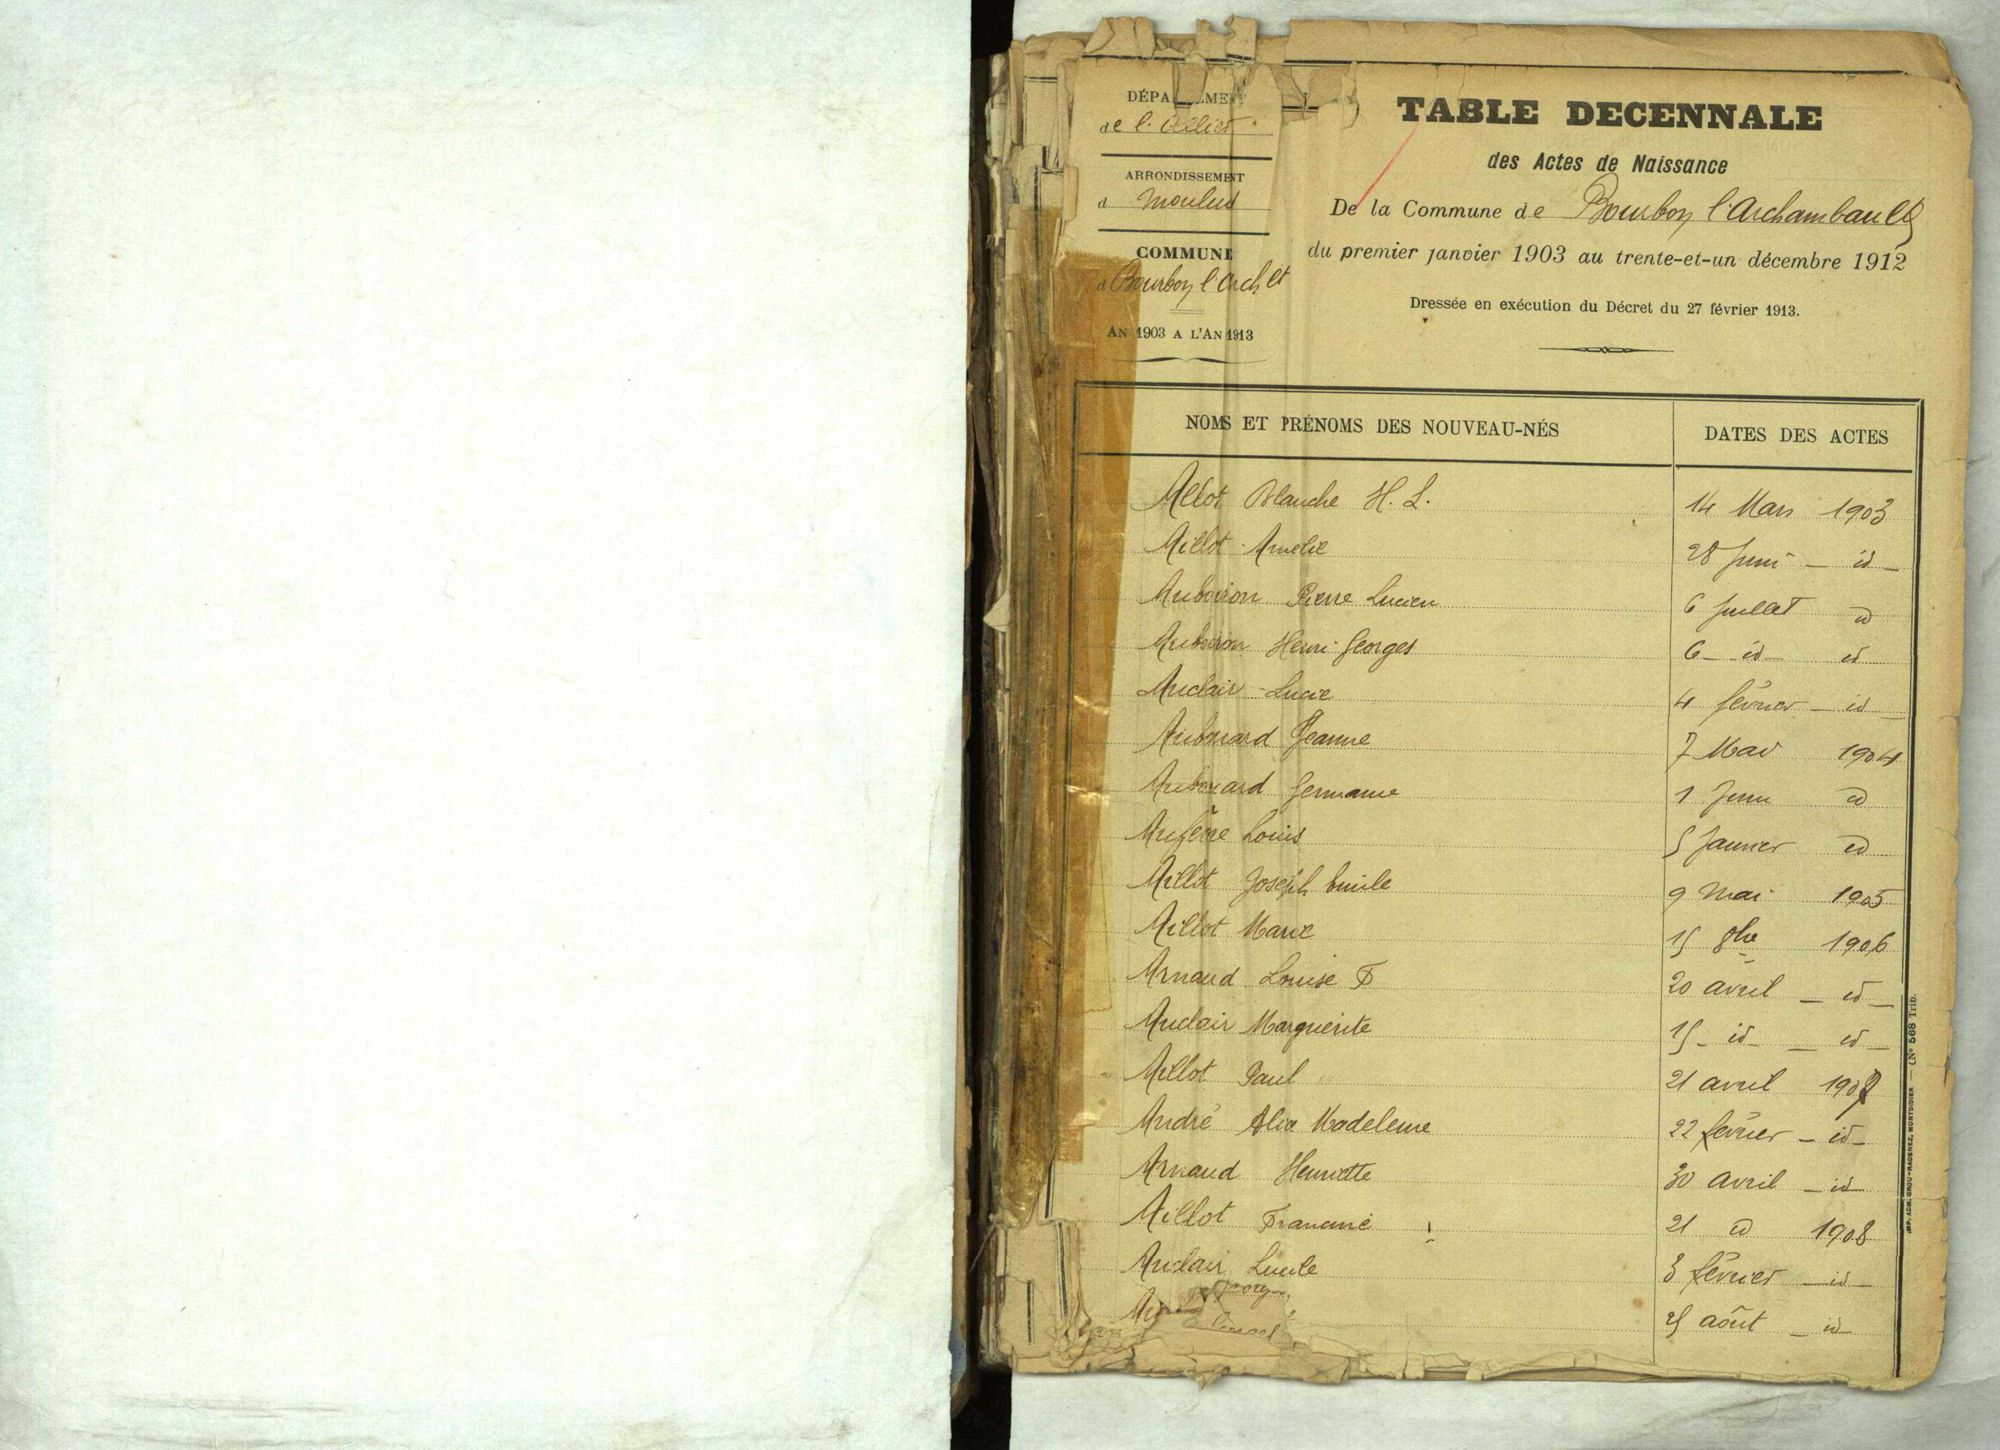 DÉPA MENT
de l'Allier
ARRONDISSEMENT
d Moulins
COMMUNE
d Bourbon l'Arch lt
AN 1903 A L'AN 1913
TABLE DECENNALE
des Actes de Naissance
De la Commune de Bourbon l'Archambault
du premier janvier 1903 au trente-et-un décembre 1912
Dressée en exécution du Décret du 27 février 1913.
NOMS ET PRÉNOMS DES NOUVEAU-NÉS DATES DES ACTES
Blanche H. L. 14 Mars 1903
Amélie 28 Juin - id -
Auboiron Pierre Lucien 6 Juillet id
Auboiron Henri Georges 6 - id - id
Auclair - Lucie 4 février - id -
Aubouard Jeanne 7 1904
Aubouard Germaine 1 Juin id
Aufère Louis 5 Janvier id
Joseph Emile 9 Mai 1905
Marie 15 8bre 1906
Arnaud Louise F 20 avril - id -
Auclair Marguerite 15 - id - - id -
Paul 21 avril 1907
André Madeleine 22 février - id -
Arnaud Henriette 30 avril - id -
21 id 1908
Auclair Lucile 3 février - id -
25 août - id -
IMP. ADM. GROU-RADENEZ, MONTDIDIER — (N° 568 Trib.